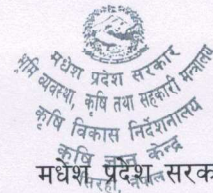 मधेश प्रदेश सरकार
भूमि व्यवस्था, कृषि तथा सहकारी मन्त्रालय
कृषि विकास निर्देशनालय
कृषि ज्ञान केन्द्र
सिरहा, नेपाल
मधेश प्रदेश सरक